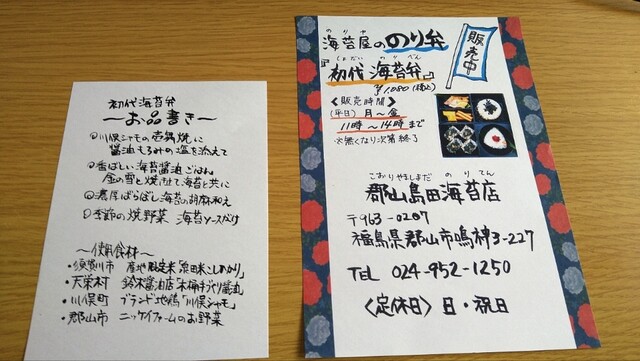 初代海苔弁
〜お品書き〜
①川俣シャモの壺鍋焼に
醤油もろみの塩を添えて
②香ばしい海苔醤油ごはん
金の雪と焼たて海苔と共に
③濃厚ばらぼし海苔の胡麻和え
④季節の焼野菜 海苔ソースがけ
〜使用食材〜
・須賀川市 産地限定米「こしひかり」
・天栄村 鈴木醤油店「木桶手づくり醤油」
・川俣町 ブランド地鶏「川俣シャモ」
・郡山市 ニッケイファームのお野菜
のりや
海苔屋ののり弁
販売中
しょだい のりべん
『初代 海苔弁』
¥1,080(税込)
〈販売時間〉
(平日) 月〜金
11時〜14時まで
※無くなり次第終了
こおりやましまだ のりてん
郡山島田海苔店
〒963-0207
福島県郡山市鳴神3-227
TEL 024-952-1250
〈定休日〉日・祝日